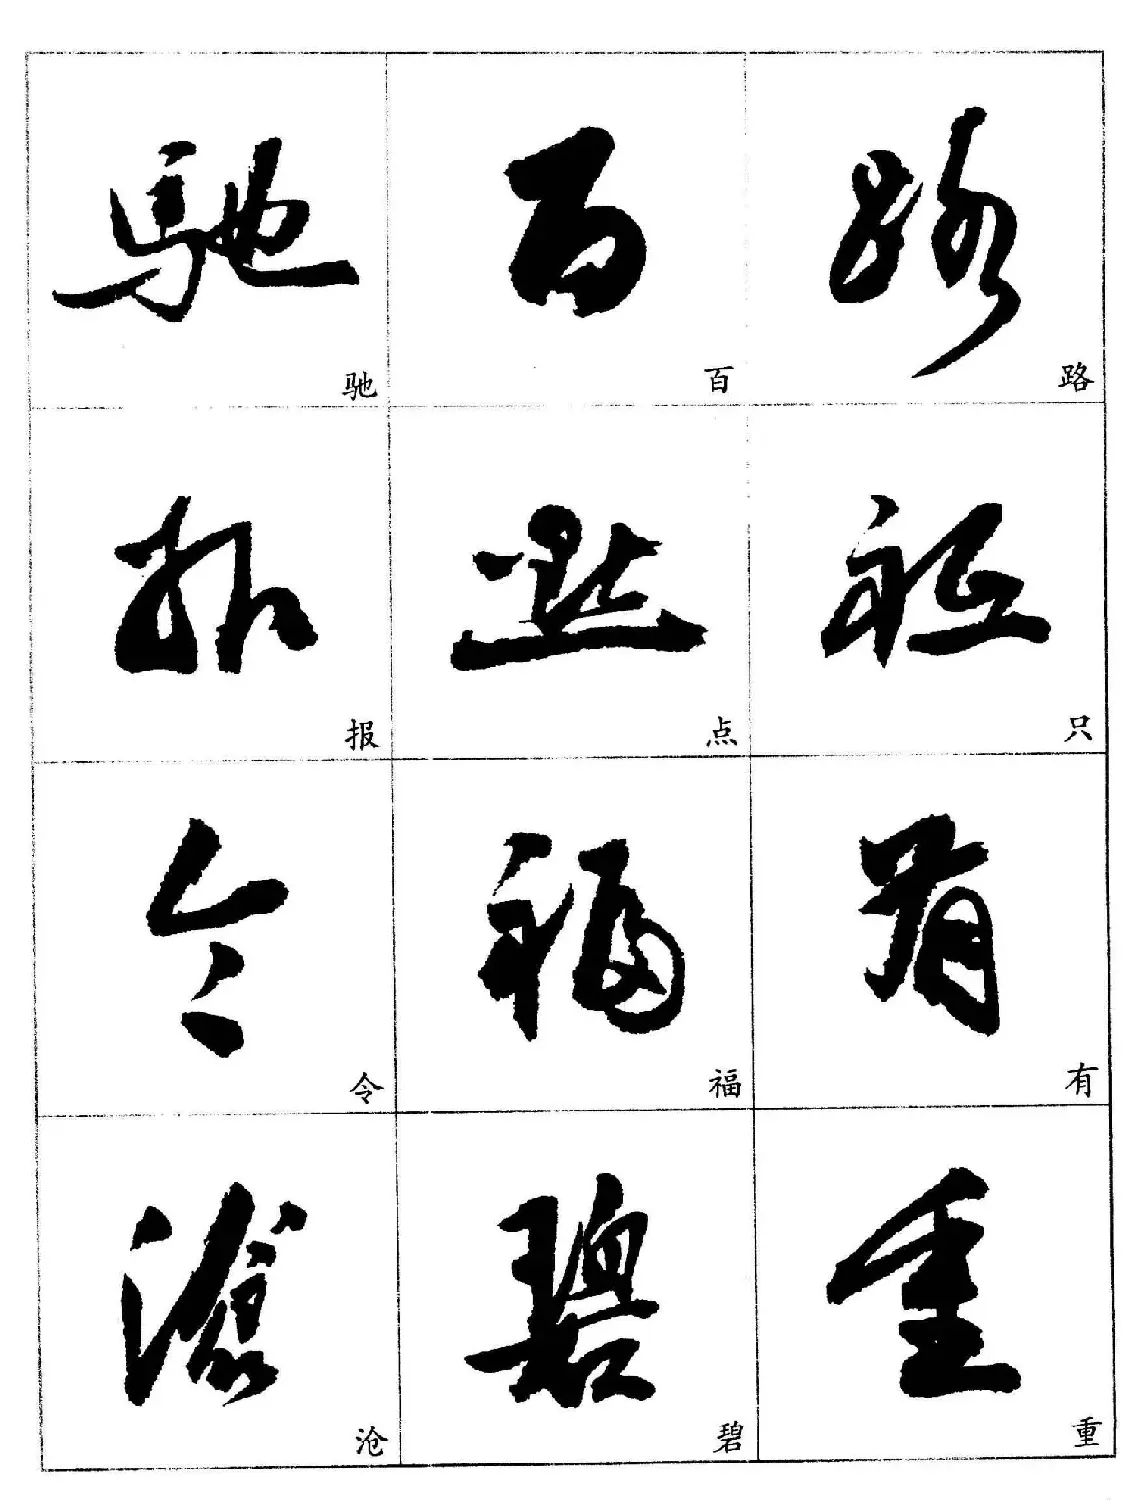 馳 百 路
驰 百 路
报 點 祗
报 点 只
令 福 有
令 福 有
滄 碧 重
沧 碧 重